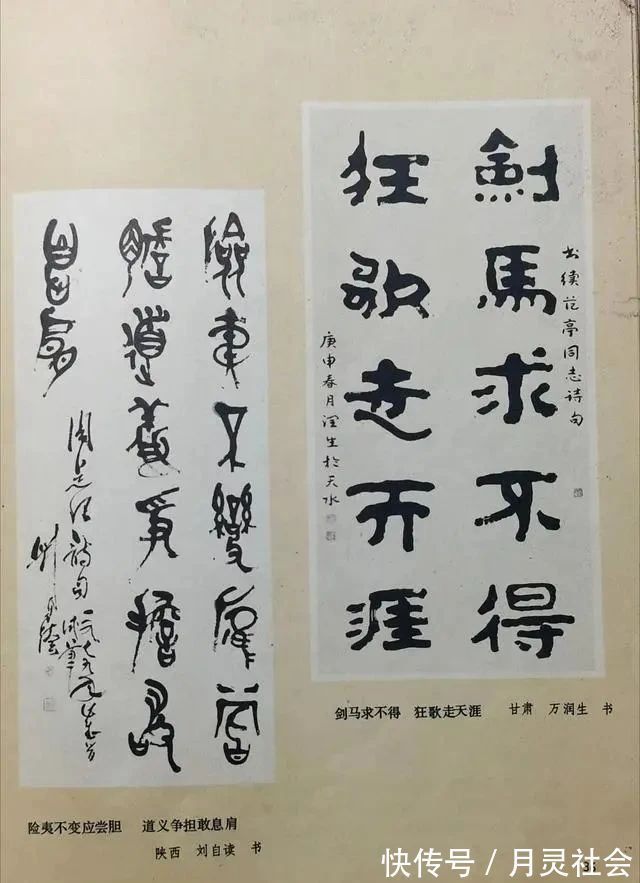 劍馬求不得
狂歌走天涯
书续范亭同志诗句
庚申春月润生於天水
剑马求不得 狂歌走天涯 甘肃 万润生 书
險夷不變應嘗
膽道義爭擔敢
息肩
周总理诗句
险夷不变应尝胆 道义争担敢息肩
陕西 刘自读 书
快传号／月灵社会